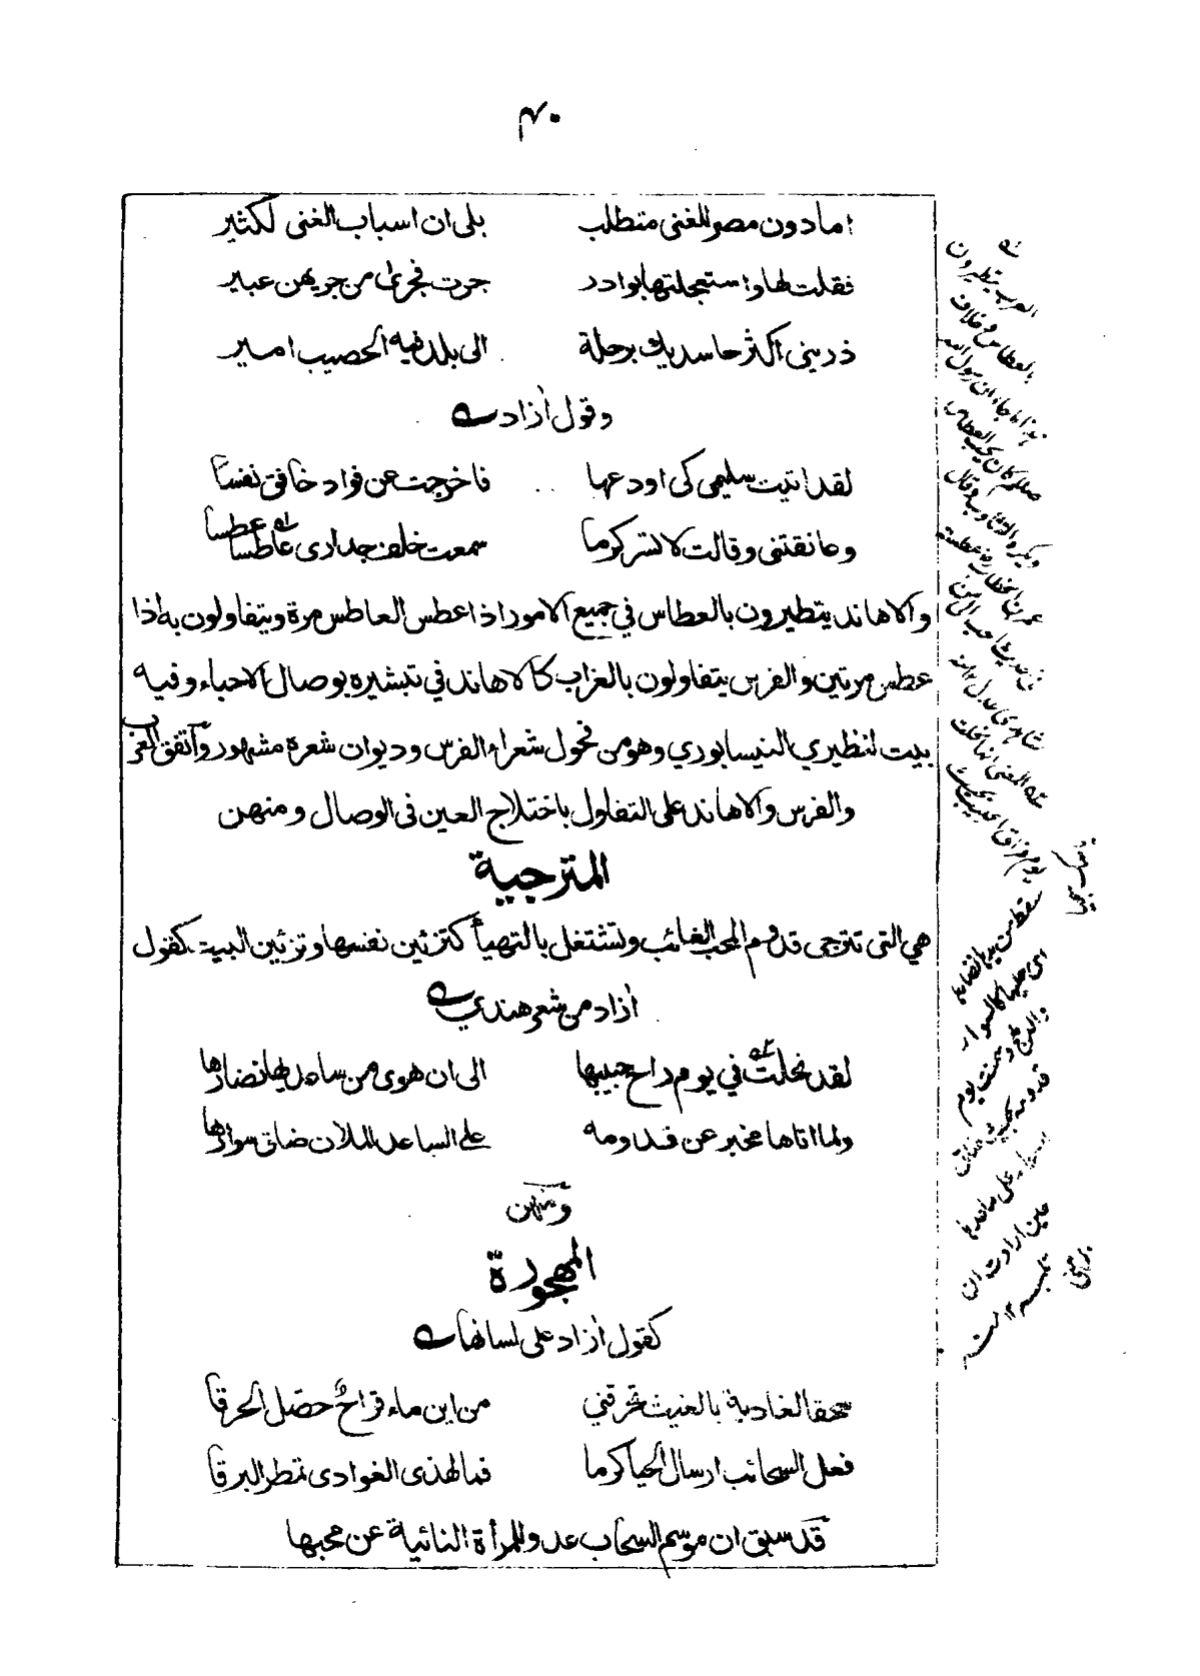 ۴۰
اما دون مصر للغنى متطلب بلى ان اسباب الغنى لكثير
فقلت لها واستعجلتها بوادر جرت فجرى من جريهن عبير
ذرينى اكثر حاسديك برحلة الى بلد فيه الخصيب امير
وقول أزاد
لقد اتيت سليمى كى اودعها فاخرجت عن فواد خافق نفسا
وعانقتنى وقالت لا تسر كرما سمعت خلف جدارى عاطسا عطسا
والاهاند يتطيرون بالعطاس في جميع الامور اذا عطس العاطس مرة ويتفاولون به اذا
عطس مرتين والفرس يتفاولون بالغراب كالاهاند في تبشيره بوصال الاحباء وفيه
بيت لنظيري النيسابوري وهو من فحول شعراء الفرس وديوان شعره مشهور واتفق العرب
والفرس والاهاند على التفاول باختلاج العين فى الوصال ومنهن
المترجية
هي التى تترجى قدوم المحب الغائب وتشتغل بالتهيأ كتزئين نفسها وتزئين البيت كقول
أزاد من شعر هندي
لقد نحلت في يوم راح حبيبها الى ان هوى من ساعديها نضارها
ولما اتاها مخبر عن قدومه على الساعد الملان ضاق سوارها
ومنهن
المهجورة
كقول أزاد على لسانها
سحقا لغادية بالغيث تحرقني من اين ماء قراح حصّل الحرقا
فعل السحائب ارسال الحيا كرما فما لهذى الغوادى تمطر البرقا
قد سبق ان موسم السحاب عدو للمرأة النائية عن محبها
العرب يتطيرون
بالعطاس وخلاف
هذا ما جاء ان رسول الله
صلعم كان يحب العطاس
ويكره التثاوب وقال
عمر بن الخطاب رض عطسة
يوم فراق
سقطت من يديها نضارها
اى حليها كالسوار
قدومه
ضاق
سوارها على ساعدها
حين ارادت ان
تلبسه ١٢ منه